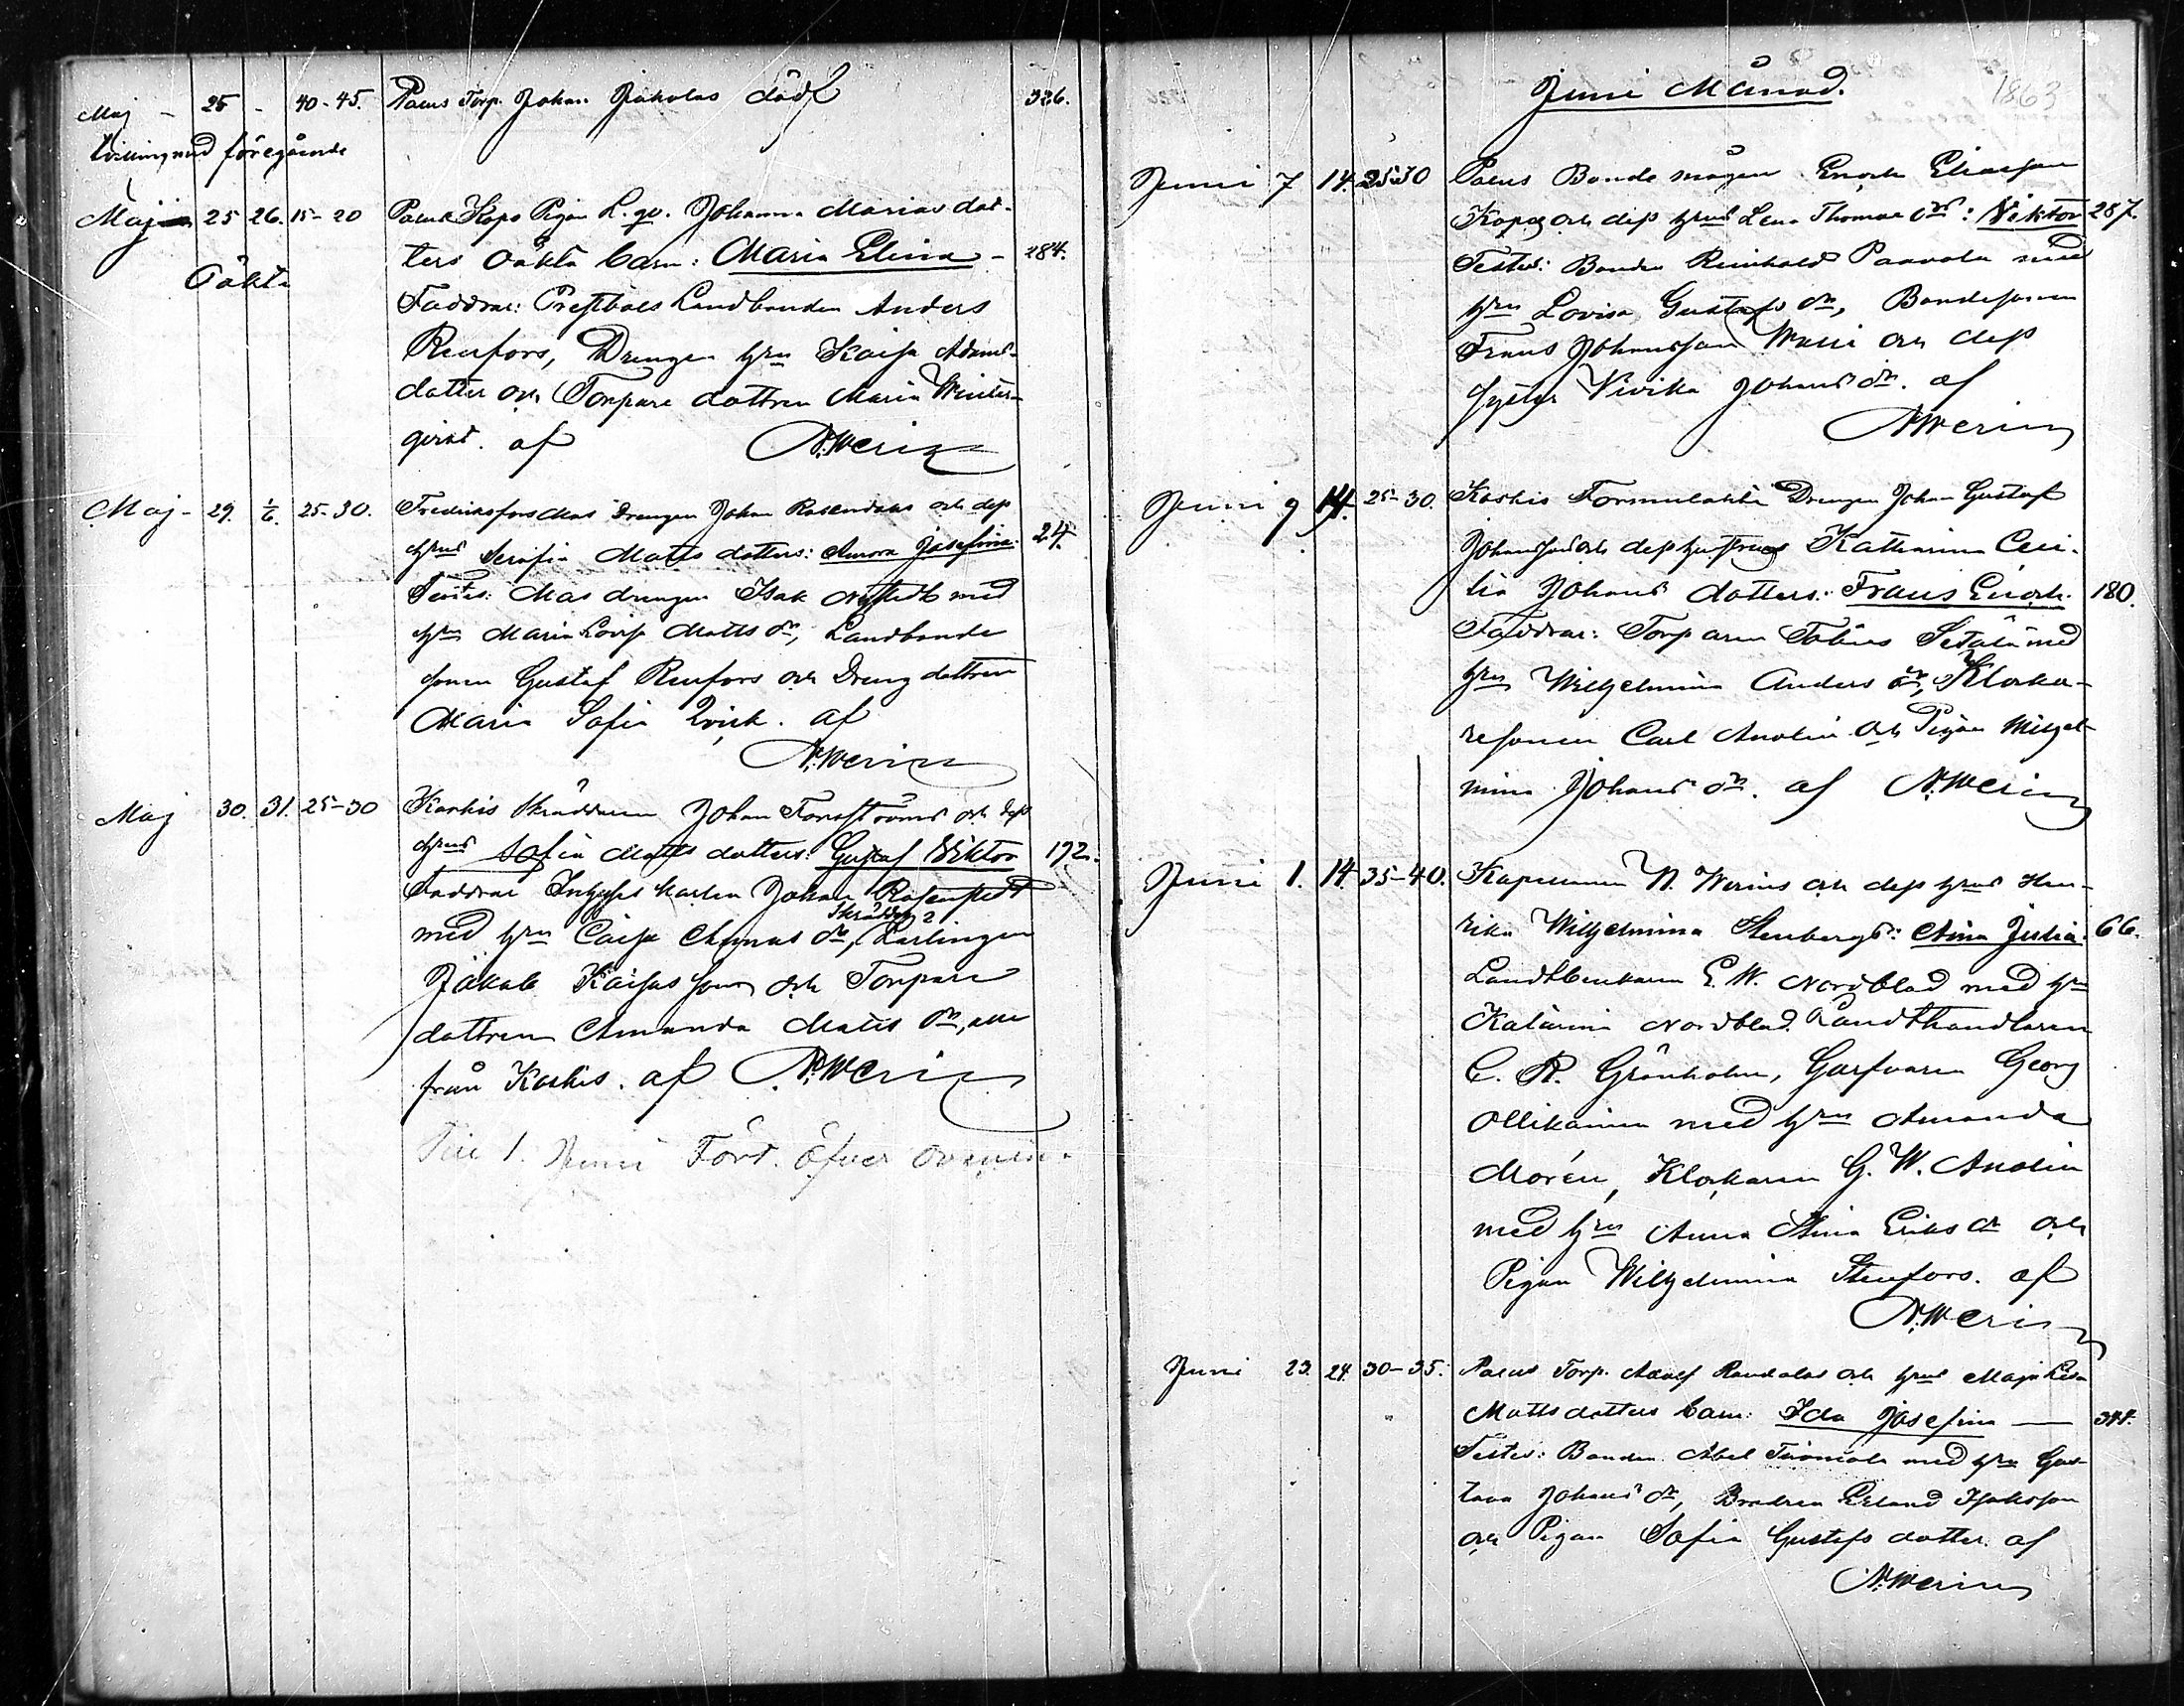 Maj - 25 - 40-45. Pacus Torp. Johan Jakolas dödf 326.
tvilling med föregående
Maj 25 26. 15-20 Pacus Kopo Pigan L. qv. Johanna Marias dot-
ters oäkta barn: Maria Elina - 284.
Oäkta
Faddrar: Prestbols Landbonden Anders
Renfors, Drengen hru Kaisa Adams-
dotter och Torpare dottren Maria Winter-
qvist. af N. Werin
Maj - 29. 1/6. 25-30. Fredriksfors Mas Drengen Johan Rosendals och dess
hrus Serafia Matts dotters: Aurora Josefina. 24.
Testes: Mas drengen Isak Nystedt med
hru Maria Lovisa Matts dr, Landbonde
sonen Gustaf Renfors och Dreng dottren
Maria Sofia Qvick. af
N. Werin
Maj 30. 31. 25-30 Koskis Skräddaren Johan Forsströms och dess
hrus Sofia Matts dotters: Gustaf Viktor 192.
Faddrar Inhyses karlen Johan Rosenstedt
med hru Caisa dr, Skrädd Lärlingen
Jakob Kaisas son och Torpare
dottren Amanda Matts dr, alla
från Koskis. af N. Werin
Till 1. Juni Förd. öfver
Juni Månad. 1863
Juni 7 14. 25-30 Pacus Bonde mågen Enoch Eliasson
Kopos och dess hrus Lena Thomas drs: Viktor 287.
Testes: Bonden Reinhold Paavola med
hru Lovisa Gustafs dr, Bondesonen
Frans Johansson och dess
syster Vivika Johans dr. af
N. Werin
Juni 9 14. 25-30. Koskis Drengen Johan Gustaf
Johansson och dess hustrus Katharina Ceci-
lia Johans dotters: Frans Enoch. 180.
Faddrar: Torparen Tobias Setälä med
hru Wilhelmina Anders dr, Klocka-
resonen Carl Anolin och Pigan Wilhel-
mina Johans dr. af N. Werin
Juni 1. 14 35-40. Kapellanen N. Werins och dess hrus Hen-
rika Wilhelmina Stenbergs: Aina Julia. 66.
Landtbrukaren E. W. Nordblad med hru
Katarina Nordblad. Landthandlaren
C. R. Grönholm, Garfvaren Georg
Ollikainen med hru Amanda
Morén, Klockaren G. W. Anolin
med hru Anna Stina Eriks dr och
Pigan Wilhelmina Stenfors. af
N. Werin
Juni 23. 24. 30-35. Pacus Torp. Adolf Randalas och hrus Maja Lisa
Mattsdotters barn: Ida Josefina — 344.
Testes: Bonden Abel med hru Gus-
tava Johans dr, Brodren Erland Isaksson
och Pigan Sofia Gustafs dotter. af
N. Werin